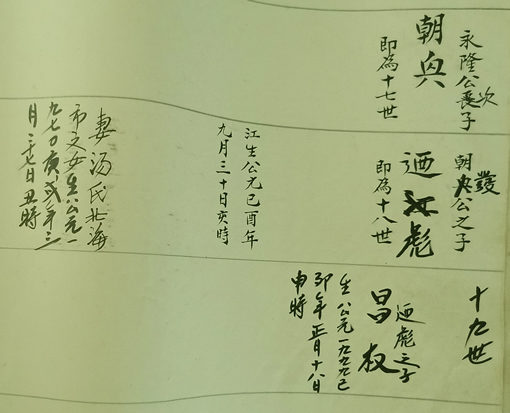 永隆公長次子
朝
即為十七世
發
朝公之子
迺江彪
即為十八世
江生公元己酉年
九月三十日亥時
妻湯氏北海
市文女生公元一
九七〇庚戌年三
月二十七日丑時
十九世
迺彪之子
昌权
生公元一九九九己
卯年正月十八日
申時